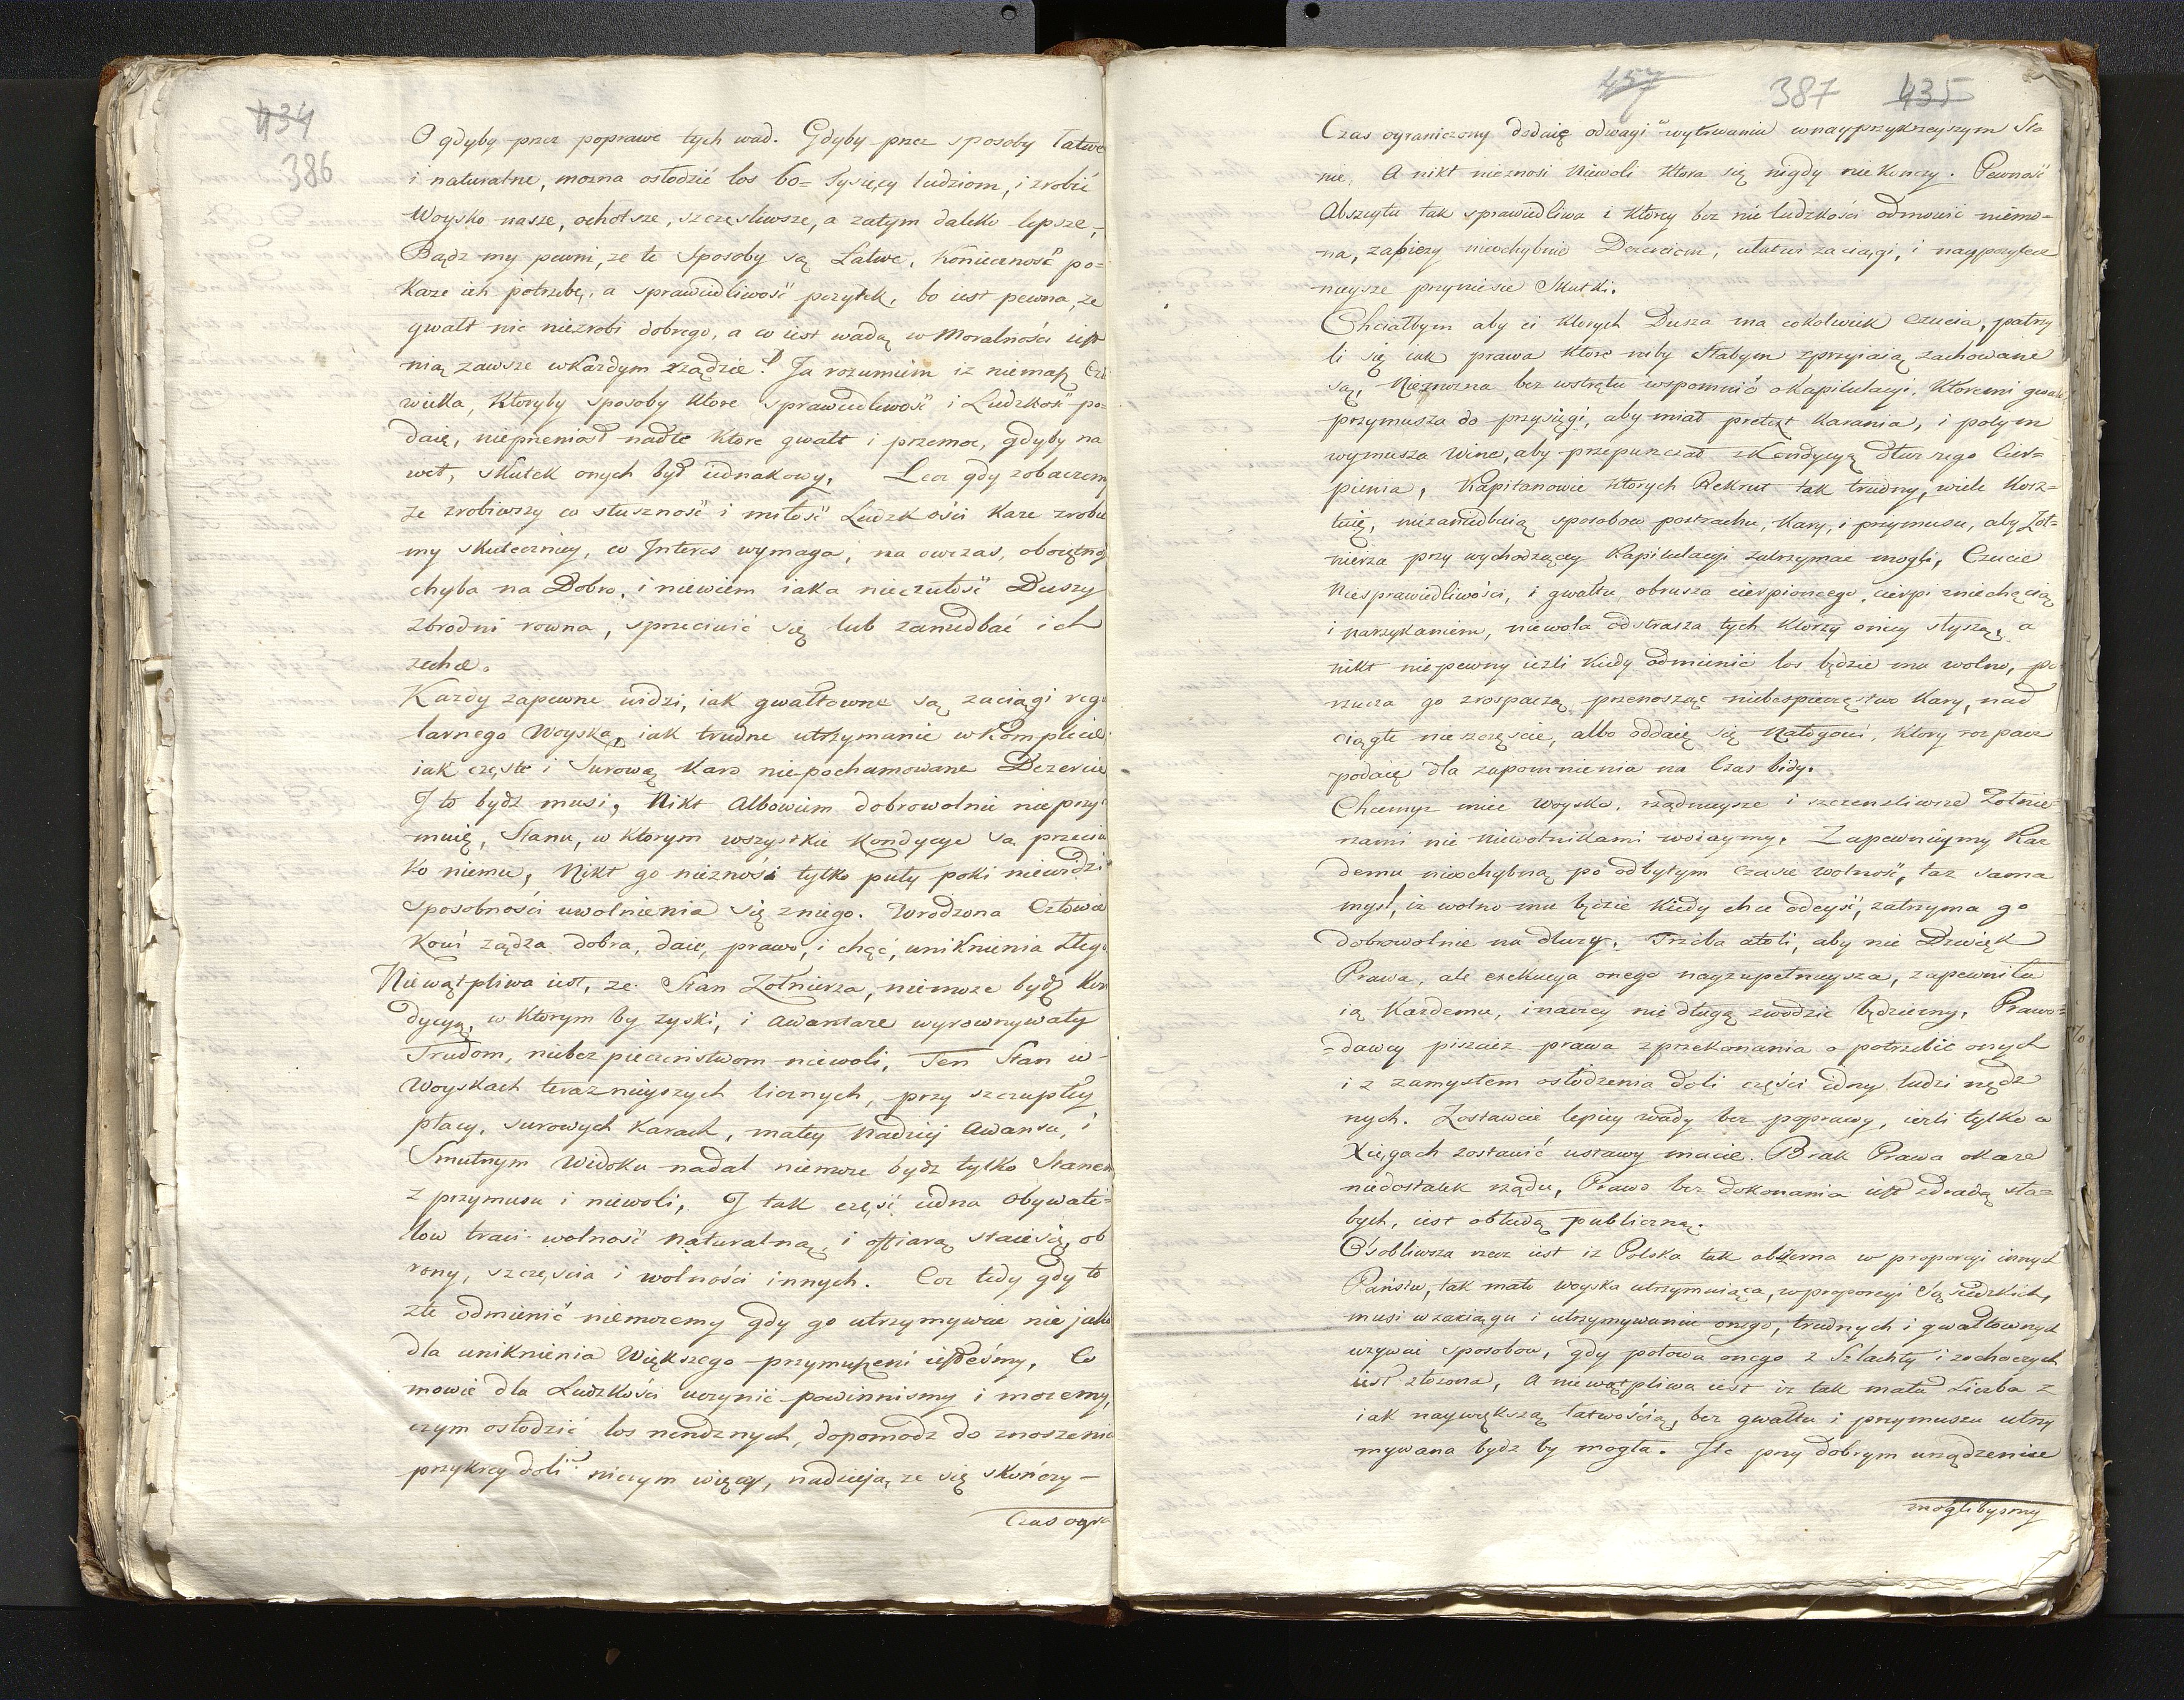 434
386
O gdyby przez poprawe tych wad. Gdyby przez sposoby Łatwe
i naturalne, mozna osłodzić los 60= Tysięcy ludziom, i zrobić
Woysko nasze, ochotsze, szczęsliwsze, a zatym daleko lepsze,
Bądz my pewni, ze te Sposoby są Łatwe, Konieczność po=
Kaze ich potrzebę, a sprawiedliwość pozytek, bo iest pewna, ze
gwałt nic niezrobi dobrego, a co iest wadą w Moralności iest
nią zawsze w Kazdym rządzie! Ja rozumiem iz niemasz Czło
wieka, Ktoryby sposoby Ktore sprawiedliwość i Ludzkość po=
daię, nieprzeniosł nadte Ktore gwałt i przemoc, gdyby na
wet, skutek onych był iednakowy, Lecz gdy zobaczemy
ze zrobiwszy co słuszność i miłość Ludzkości Kaze zrobie
my skuteczniey, co Interes wymaga, na owczas, oboiętność
chyba na Dobro, i niewiem iaka nieczułość Duszy
zbrodni rowna, sprzeciwić się lub zaniedbać ich
zechce.
Kazdy zapewne widzi, iak gwałtowne są zaciągi regu
larnego Woyska, iak trudne utrzymanie w Komplecie
iak częste i Surową Karą niepochamowane Dezercie
I to bydz musi, Nikt Albowiem dobrowolnie nieprzy
muię, Stanu, w Ktorym wszystkie Kondycye są przeciw
Ko niemu, Nikt go nieznosi tylko puty poki niewidzi
sposobności uwolnienia się zniego. Wrodzona Człowie
Kowi ządza dobra, daie, prawo, i chęć, uniknienia złego
Niewątpliwa iest, ze Stan Zołnierza, niemoze bydz Kon
dycyą, w Ktorym by zyski, i Awantaze wyrownywały
Trudom, niebezpieczeństwom niewoli, Ten Stan w-
Woyskach teraznieyszych licznych, przy szczupłey
płacy, surowych Karach, małey Nadziei Awansu, i
Smutnym Widoku nadal niemoze bydz tylko Stanem
z przymusu i niewoli, I tak część iedna Obywate=
low traci wolność Naturalną, i offiarą staie się, ob
rony, szczęscia i wolności innych. Coz tedy gdy to
złe odmienić niemozemy gdy go utrzymywać nie jako
dla uniknienia Większego przymuszeni iesteśmy, Co
mowie dla Ludzkości uczynić powinnismy i mozemy,
czym osłodzić los nendznych, dopomodz do znoszenia
przykrey doli? niczym więcey, nadzieją, ze się skończy-
Czas ogra
457
387 435
Czas ograniczony dodaię odwagi wytrwaniu w nayprzykrzeyszym Sta
nie. A nikt nieznosi Niewoli Ktora się nigdy nie Konczy. Pewność
Abszeytu tak sprawiedliwa i Ktorey bez nie ludzkości odmowić niemo=
na, zabiezy nieochybnie Dezerciom, ułatwi zaciągi, i naypozytecz
nieysze przyniesie Skutki.
Chciałbym aby ci Ktorych Dusza ma cokolwiek czucia, patrzy
li się iak prawa Ktore niby Słabym sprzyiaią zachowane
są, Niemozna bez wstrętu wspomnić o Kapitulacyi, Ktoremi gwałt
przymusza do przysięgi, aby miał pretext Karania, i potym
wymusza Winę, aby przepuszczał z Kondycyą dłuzszego Cier=
pienia, Kapitanowie Ktorych Rekrut tak trudny, wiele Kosz=
tuię, niezaniedbuią sposobow postrachu, Kary, i przymusu, aby Zoł=
nierza przy wychodzącey Kapitulacyi zatrzymac mogli, Czucie
Niesprawiedliwości, i gwałtu obrusza cierpioncego, cierpi zniechęcią
i narzykaniem, niewola odstrasza tych Ktorzy oniey słyszą, a
nikt niepewny iezli Kiedy odmienić los będzie mu wolno, po
rzuca go zrospaczą przenosząc niebespieczęstwo Kary, nad
ciągłe nieszczęscie, albo oddaię się Nałogowi, Ktory rozpacz
podaię dla zapomnienia na Czas bidy.
Chcemyz miec woysko, rządnieysze i szczensliwsze Zołnie=
rzami nie Niewolnikami woiaymy, Zapewniymy Kaz
demu nieochybną po odbytym Czasie wolność, taz sama
mysl, iz wolno mu będzie Kiedy chce odeyść, zatrzyma go
dobrowolnie na dłuzy. Trzeba atoli, aby nie Dzwięk
Prawa, ale exekucya onego nayzupełnieysza, zapewniła
ią Kazdemu, inaczey nie długą zwodzic będziemy, Prawo=
=dawcy pisząc prawa z przekonania o potrzebie onych
i z zamysłem osłodzenia doli części iedney ludzi nędz
nych. Zostawcie lepiey wady bez poprawy, iezli tylko w
Xięgach zostawić ustawy macie. Brak Prawa okaze
niedostatek rządu, Prawo bez dokonania iest zdradą sła=
bych, iest obłudą publiczną.
Osobliwsza rzecz iest iz Polska tak obszerna w proporcyi innych
Państw, tak mało woyska utrzymuiąca, w proporcyi Sąsiedzkich,
musi w zaciągu i utrzymywaniu onego, trudnych i gwałtownych
uzywać sposobow, gdy połowa onego z Szlachty i zochoczych
iest złozona, A niewątpliwa iest iz tak mała Liczba z
iak naywiększą łatwością, bez gwałtu i przymuszu utrzy
mywana bydz by mogła. Ile przy dobrym urządzeniu
moglibysmy